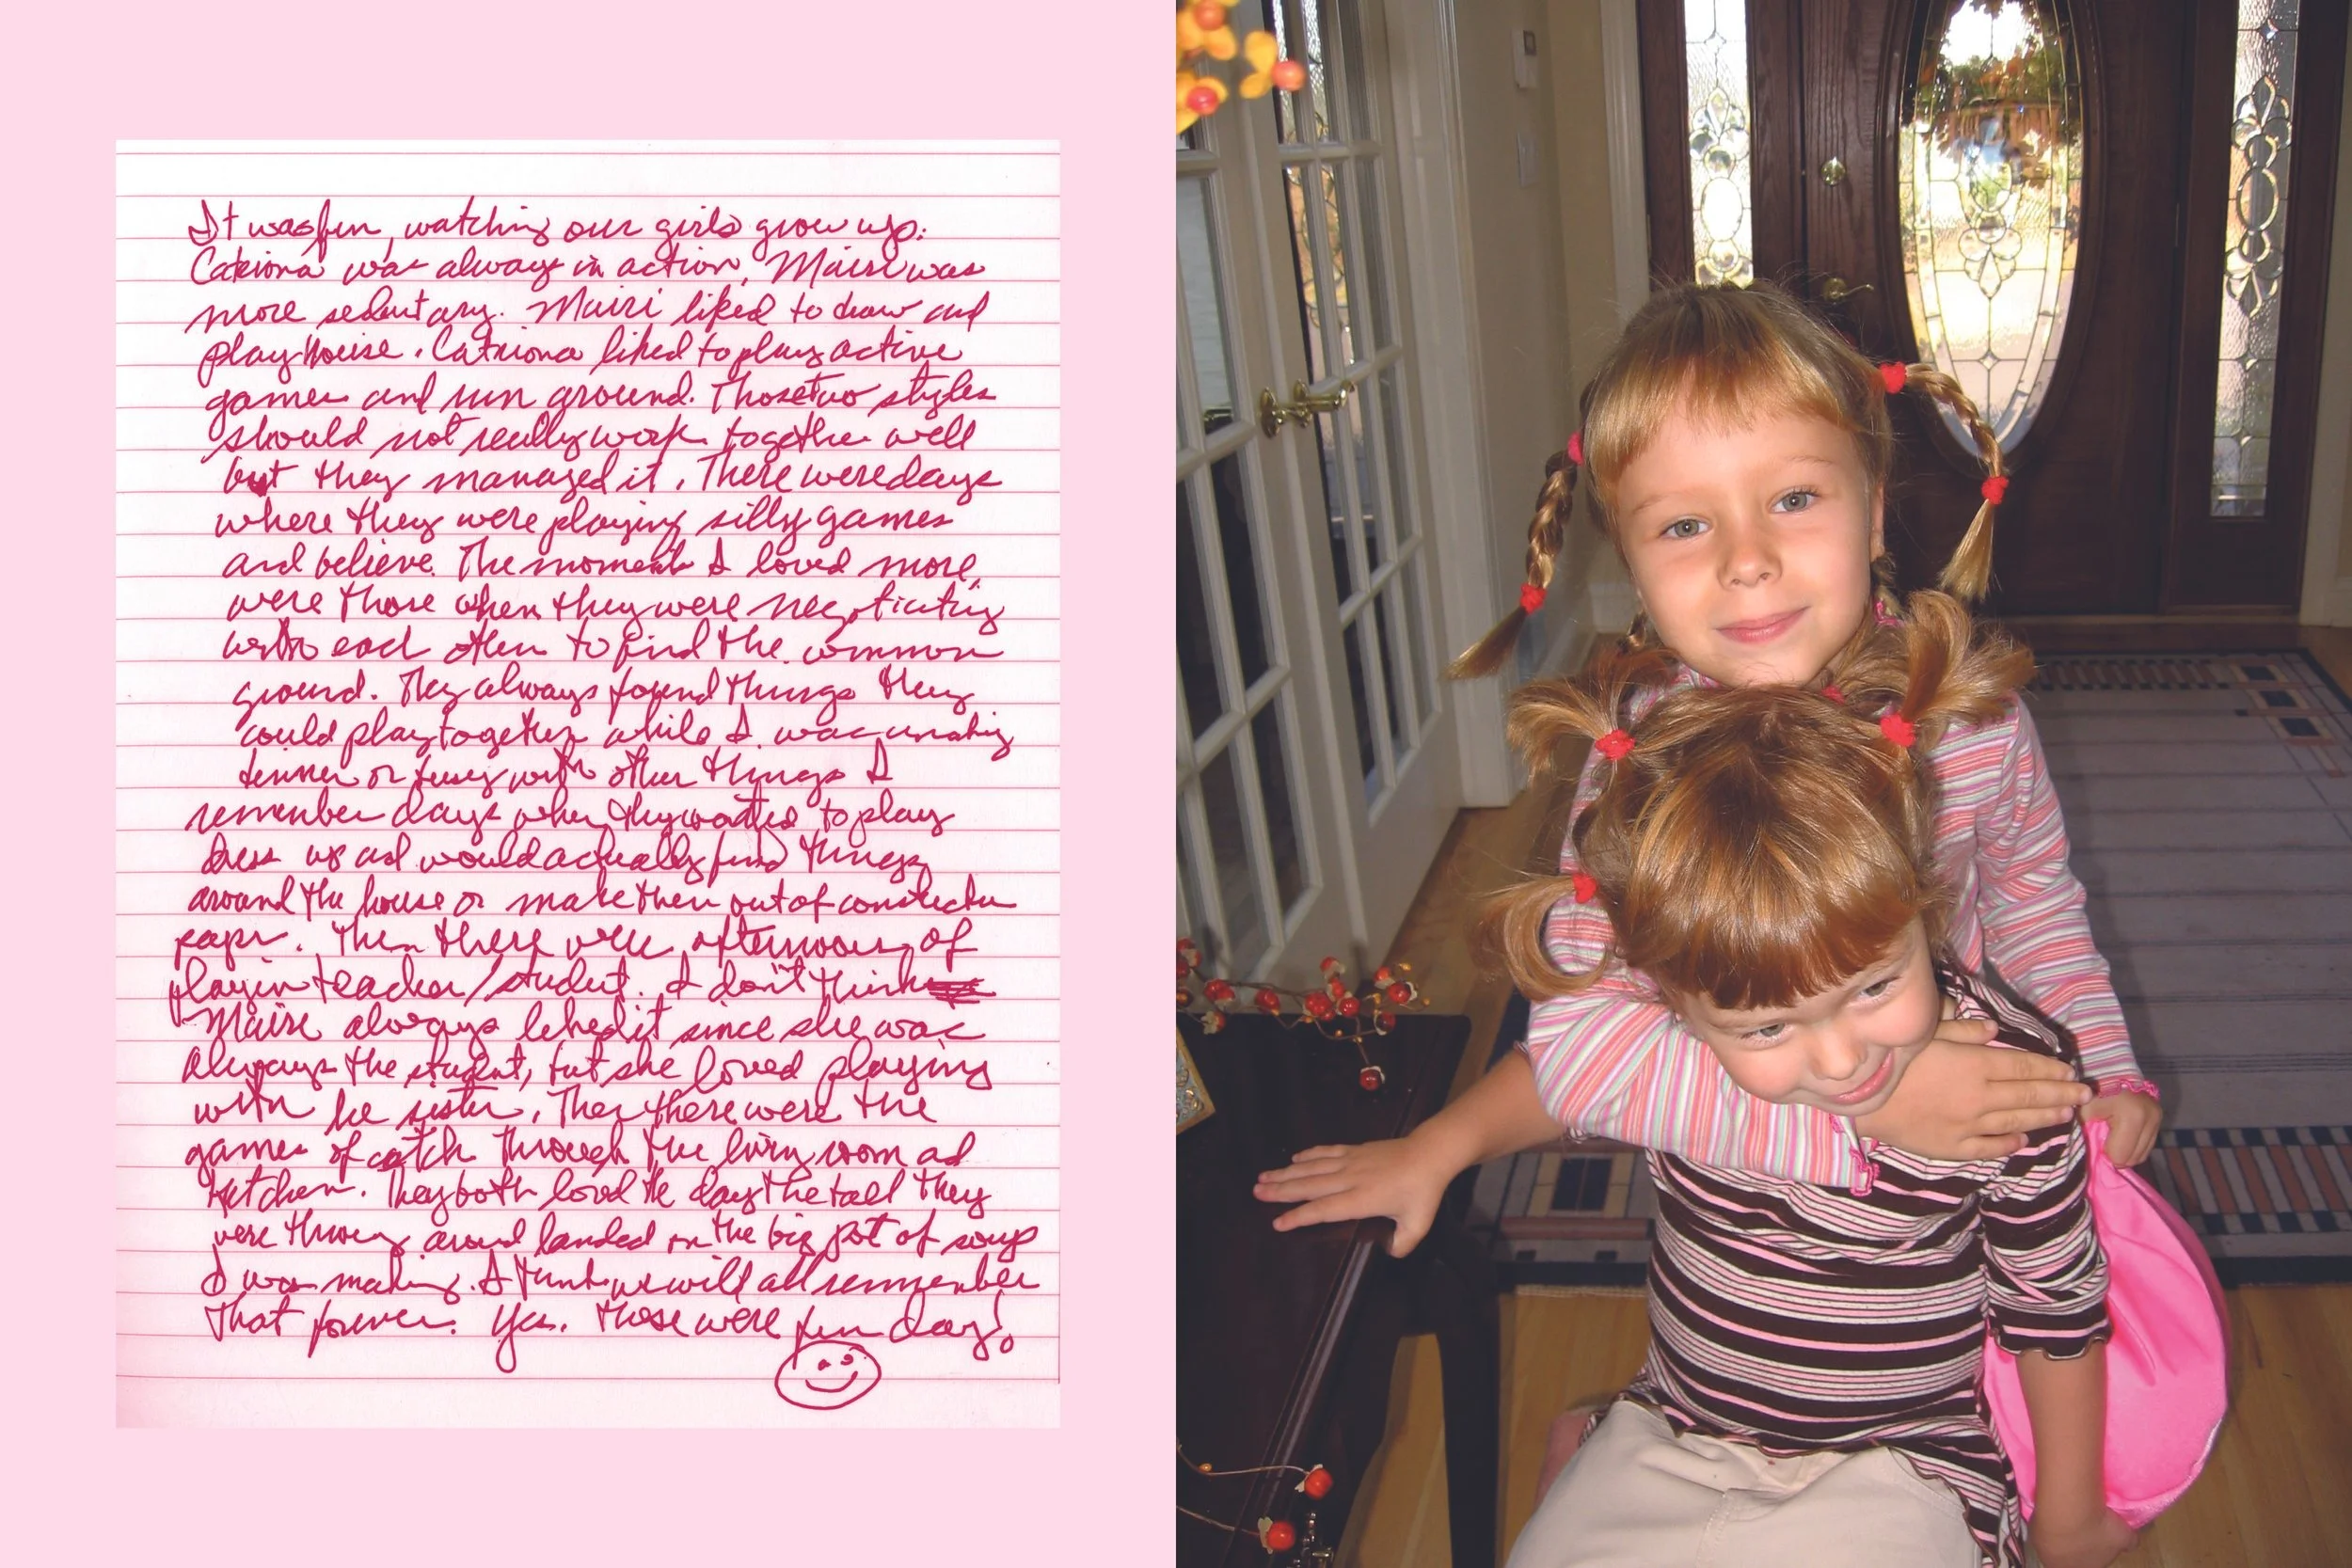 It was fun, watching our girls grow up.
Catriona was always in action, Mairi was
more sedentary. Mairi liked to draw and
play house. Catriona liked to play active
games and run around. Those two styles
should not really work together well
but they managed it. There were days
where they were playing silly games
and believe. The moments I loved more,
were those when they were negotiating
with each other to find the common
ground. They always found things they
could play together while I was making
dinner or busy with other things I
remember days when they wanted to play
dress up and would actually find things
around the house or make them out of construction
paper. Then there were afternoons of
playin teacher/student. I don't think
Mairi always liked it since she was
always the student, but she loved playing
with he sister. Then there were the
games of catch through the living room ad
kitchen. They both loved the day the ball they
were throwing around landed in the big pot of soup
I was making. I think we will all remember
that forever. Yes. Those were fun days!